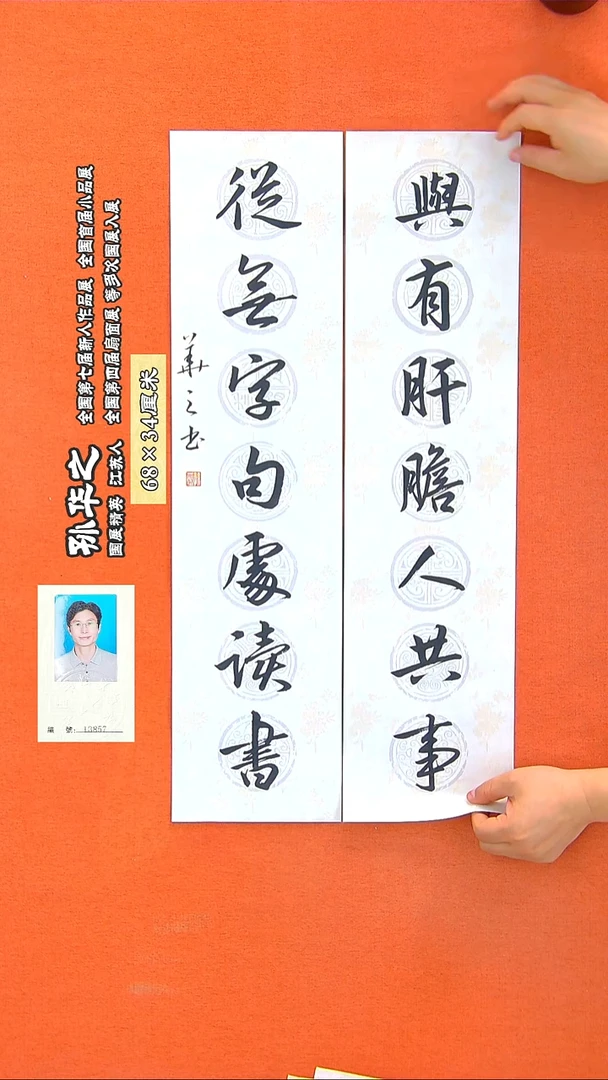 與有肝膽人共事
從無字句處读書
華之书
孙华之
国展精英 江苏人
全国第七届新人作品展 全国首届小品展
全国第四届扇面展 等多次国展入展
68×34厘米
編 號: 13857